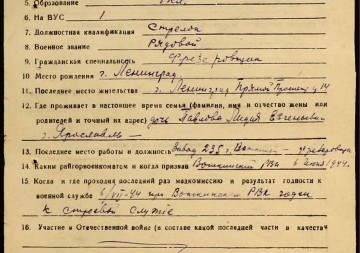 5. Образование
6. На ВУС 1
7. Должностная квалификация Стрелок
8. Военное звание Рядовой
9. Гражданская специальность Фрезеровщик
10 Место рождения г. Ленинград
11. Последнее место жительства г. Ленинград
12. Где проживает в настоящее время семья (фамилия, имя и отчество жены или
родителей и точный их адрес) дочь Павлова Лидия Евгеньевна
г. Ярославль
13. Последнее место работы и должность Завод 235,
14. Каким райгорвоенкоматом и когда призван Воткинский РВК 6 1944.
15. Когда и где проходил последний раз медкомиссию и результат годности к
военной службе 6/VII-44 при Воткинском РВК годен
к строевой службе
16. Участие в Отечественной войне (в составе какой последней части в качестве